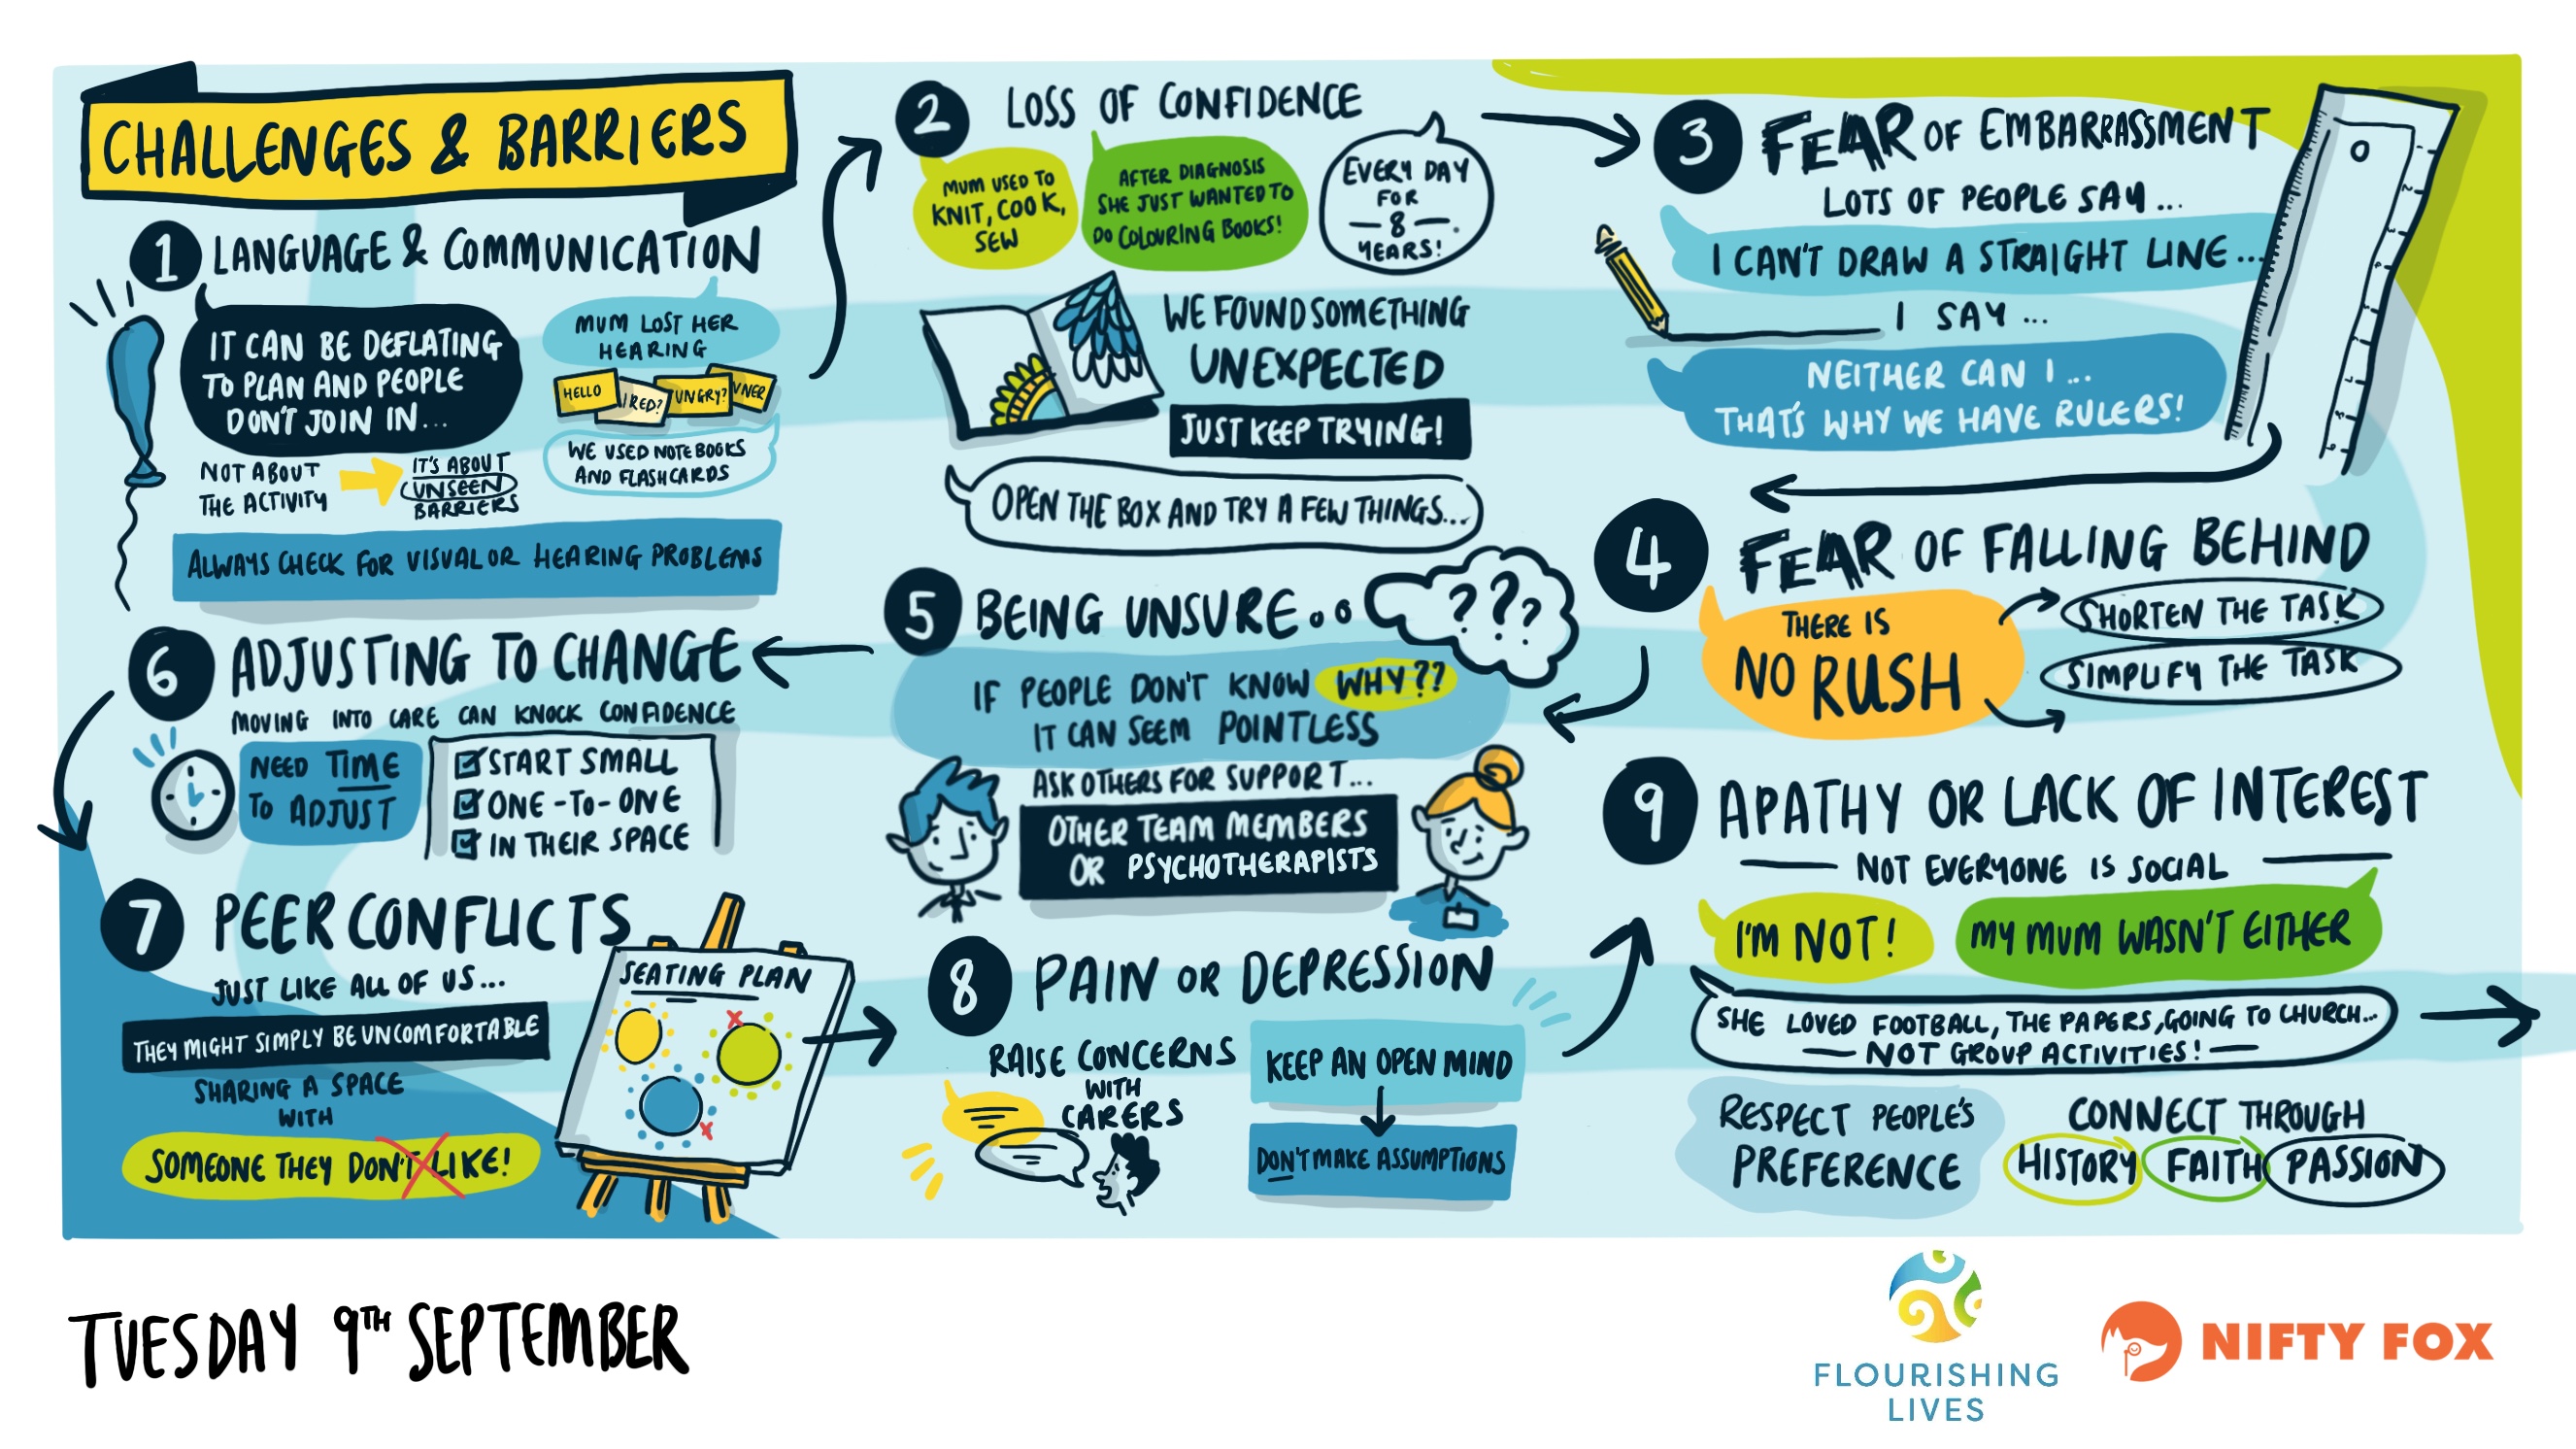 CHALLENGES & BARRIERS
1 LANGUAGE & COMMUNICATION
IT CAN BE DEFLATING
TO PLAN AND PEOPLE
DON'T JOIN IN...
NOT ABOUT
THE ACTIVITY
IT'S ABOUT
UNSEEN
BARRIERS
MUM LOST HER
HEARING
HELLO
IRED?
UNGRY?
NNER
WE USED NOTEBOOKS
AND FLASHCARDS
ALWAYS CHECK FOR VISUAL OR HEARING PROBLEMS
2 LOSS OF CONFIDENCE
MUM USED TO
KNIT, COOK,
SEW
AFTER DIAGNOSIS
SHE JUST WANTED TO
DO COLOURING BOOKS!
EVERY DAY
FOR
8
YEARS!
WE FOUND SOMETHING
UNEXPECTED
JUST KEEP TRYING!
OPEN THE BOX AND TRY A FEW THINGS...
3 FEAR OF EMBARRASSMENT
LOTS OF PEOPLE SAY...
I CAN'T DRAW A STRAIGHT LINE...
I SAY...
NEITHER CAN I...
THAT'S WHY WE HAVE RULERS!
0
4 FEAR OF FALLING BEHIND
THERE IS
NO RUSH
SHORTEN THE TASK
SIMPLIFY THE TASK
5 BEING UNSURE..
???
IF PEOPLE DON'T KNOW WHY??
IT CAN SEEM POINTLESS
ASK OTHERS FOR SUPPORT...
OTHER TEAM MEMBERS
OR PSYCHOTHERAPISTS
6 ADJUSTING TO CHANGE
MOVING INTO CARE CAN KNOCK CONFIDENCE
NEED TIME
TO ADJUST
START SMALL
ONE-TO-ONE
IN THEIR SPACE
7 PEER CONFLICTS
JUST LIKE ALL OF US...
THEY MIGHT SIMPLY BE UNCOMFORTABLE
SHARING A SPACE
WITH
SOMEONE THEY DON'T LIKE!
SEATING PLAN
8 PAIN OR DEPRESSION
RAISE CONCERNS
WITH
CARERS
KEEP AN OPEN MIND
DON'T MAKE ASSUMPTIONS
9 APATHY OR LACK OF INTEREST
NOT EVERYONE IS SOCIAL
I'M NOT!
MY MUM WASN'T EITHER
SHE LOVED FOOTBALL, THE PAPERS, GOING TO CHURCH...
NOT GROUP ACTIVITIES!
RESPECT PEOPLE'S
PREFERENCE
CONNECT THROUGH
HISTORY FAITH PASSION
TUESDAY 9TH SEPTEMBER
FLOURISHING
LIVES
NIFTY FOX